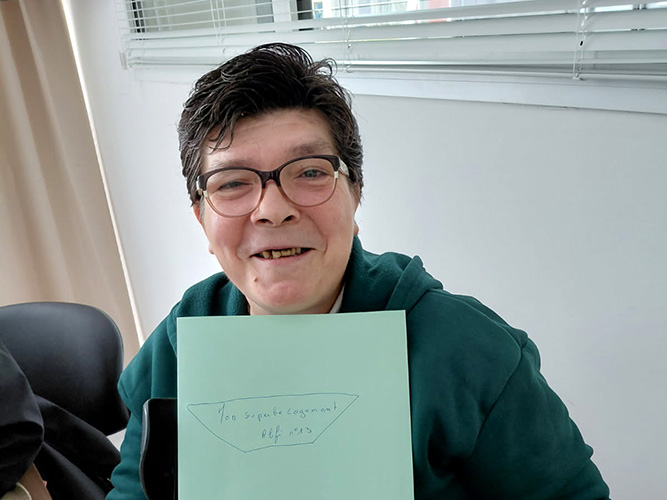 Mon superbe Logement
Défi n°13